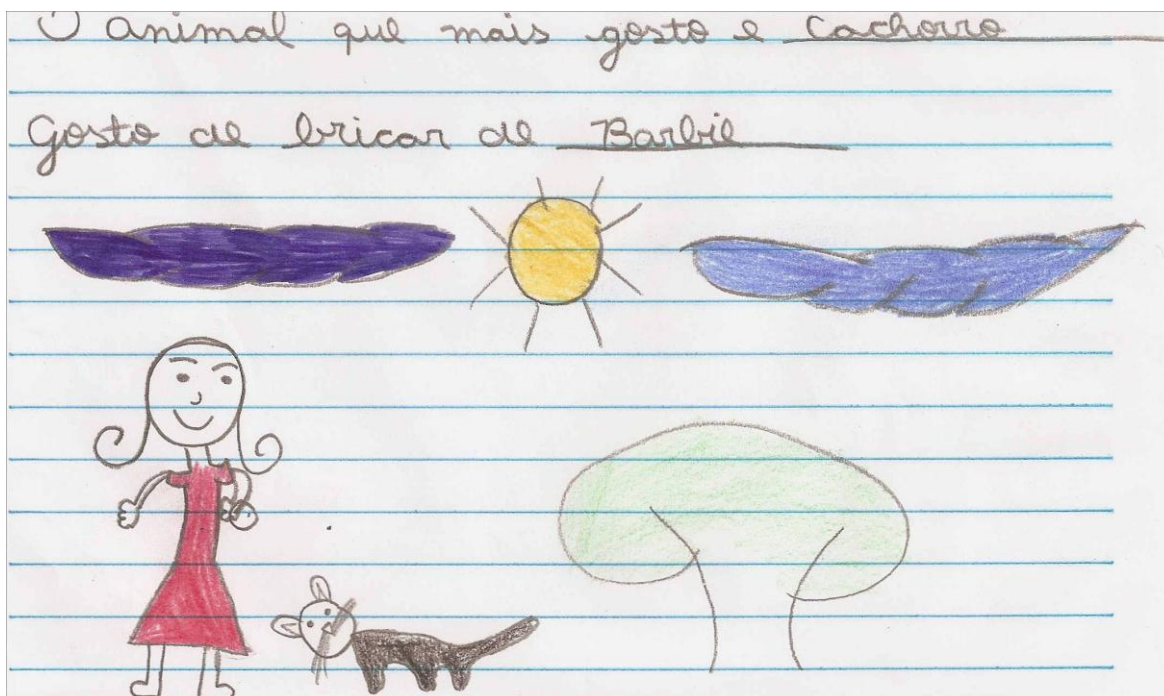 O animal que mais gosto e Cachorro
Gosto de bricar de Barbie